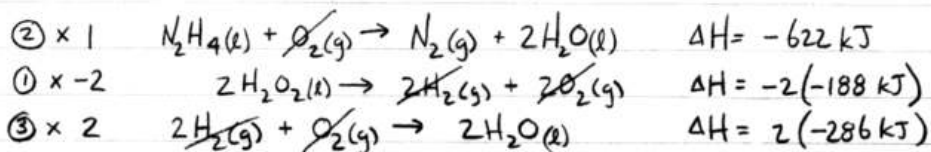 ② × 1 N₂H₄(l) + O₂(g) → N₂(g) + 2H₂O(l) ΔH = -622 kJ
① × -2 2H₂O₂(l) → 2H₂(g) + 2O₂(g) ΔH = -2(-188 kJ)
③ × 2 2H₂(g) + O₂(g) → 2H₂O(l) ΔH = 2(-286 kJ)